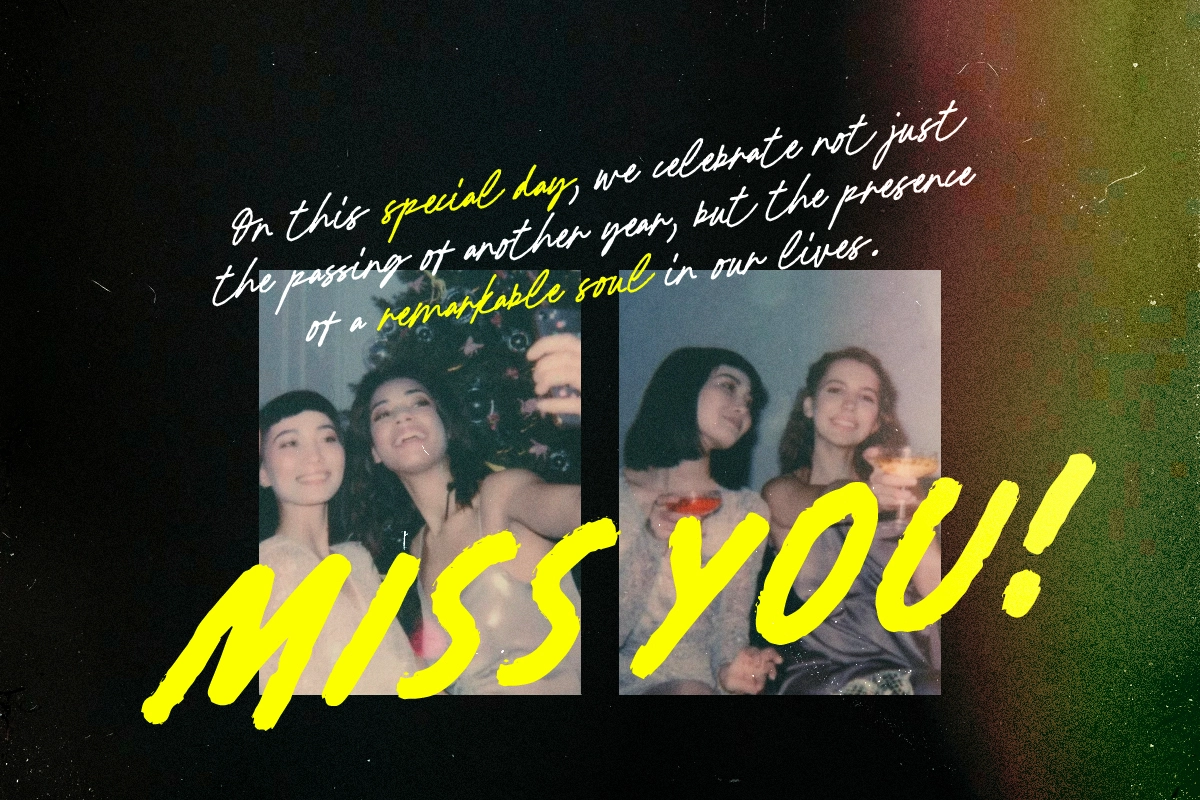 On this special day, we celebrate not just
the passing of another year, but the presence
of a remarkable soul in our lives.
MISS YOU!